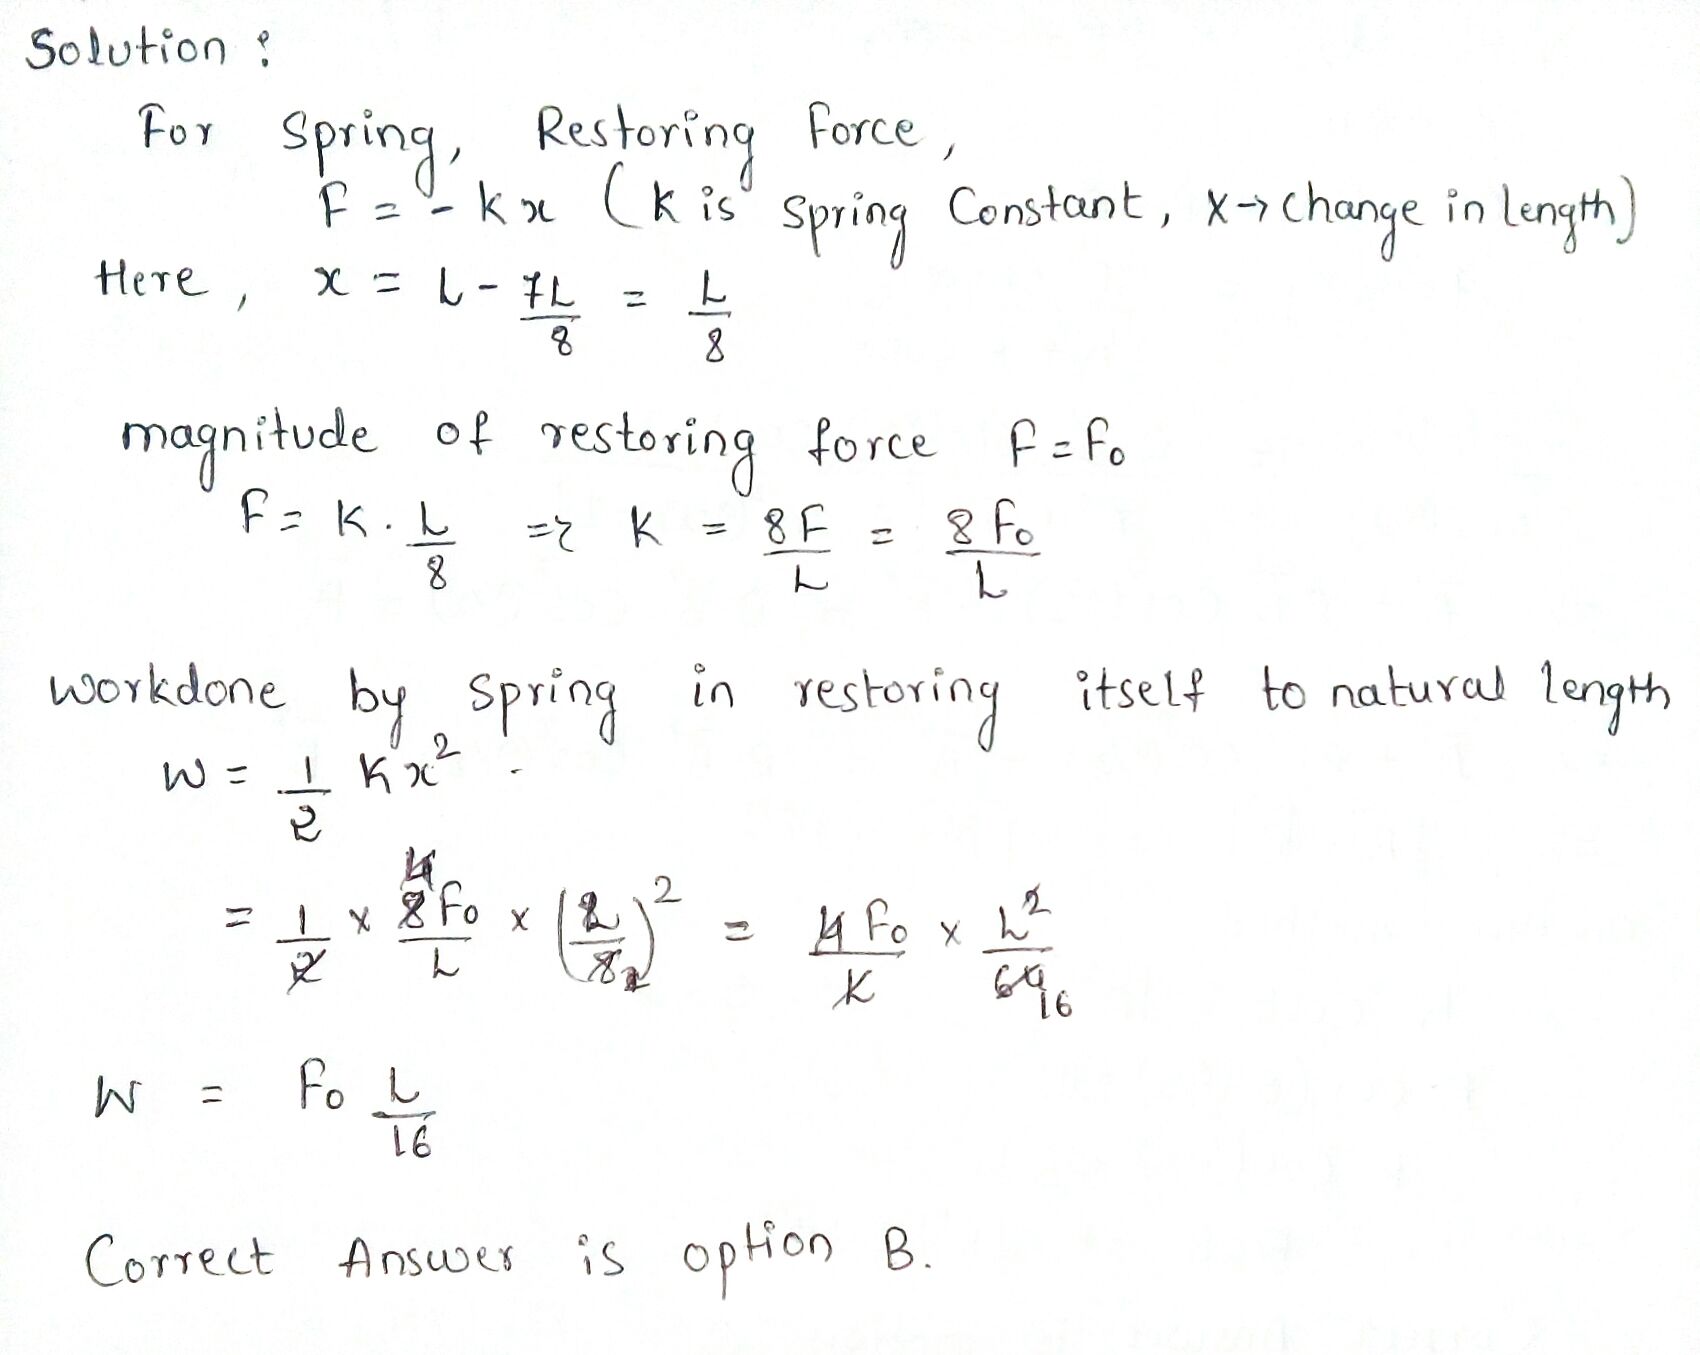 Solution :
For Spring, Restoring Force,
F = - kx (k is Spring Constant, x → change in length)
Here, x = L - 7L/8 = L/8
magnitude of restoring force F = F₀
F = K . L/8 => K = 8F/L = 8F₀/L
workdone by spring in restoring itself to natural length
W = 1/2 Kx² .
= 1/2 x 8F₀/L x (L/8)² = 4F₀/L x L²/64 16
W = F₀ L/16
Correct Answer is option B.